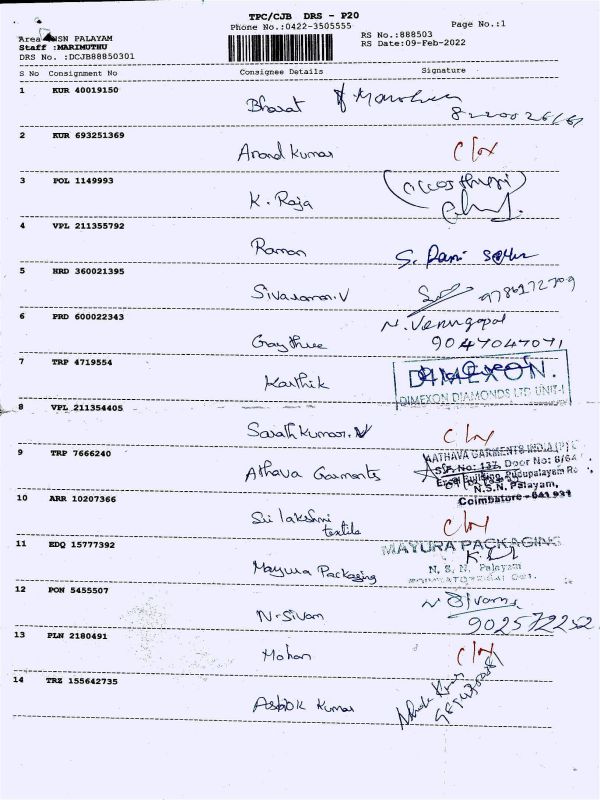 TPC/CJB DRS - P20
Phone No.:0422-3505555
Page No.:1
Area NSN PALAYAM
Staff :MARIMUTHU
DRS No. :DCJB88850301
RS No.:888503
RS Date:09-Feb-2022
S No Consignment No Consignee Details Signature
1 KUR 40019150 Bharat
2 KUR 693251369 Anand Kumar
3 POL 1149993 K. Raja
4 VPL 211355792 Raman S. Rani
5 HRD 360021395 Sivaraman.V 9786172709
6 PRD 600022343 Gaythree N. Venugopal
9047047071
7 TRP 4719554 Karthik DIMEXON.
DIMEXON DIAMONDS LTD UNIT-I
8 VPL 211354405 Sarath Kumar.
9 TRP 7666240 Athava Garments AATHAVA GARMENTS INDIA (P)
S.F. No: 137, Door No: 6/64
Pudupalayam
N.S.N. Palayam,
Coimbatore - 641 031
10 ARR 10207366 Sri lakshmi
textile
11 EDQ 15777392 Mayura Packaging MAYURA PACKAGING
N. S. N. Palayam
12 PON 5455507 N. Sivam
902572252
13 PLN 2180491 Mohan
14 TRZ 155642735 Ashok Kumar